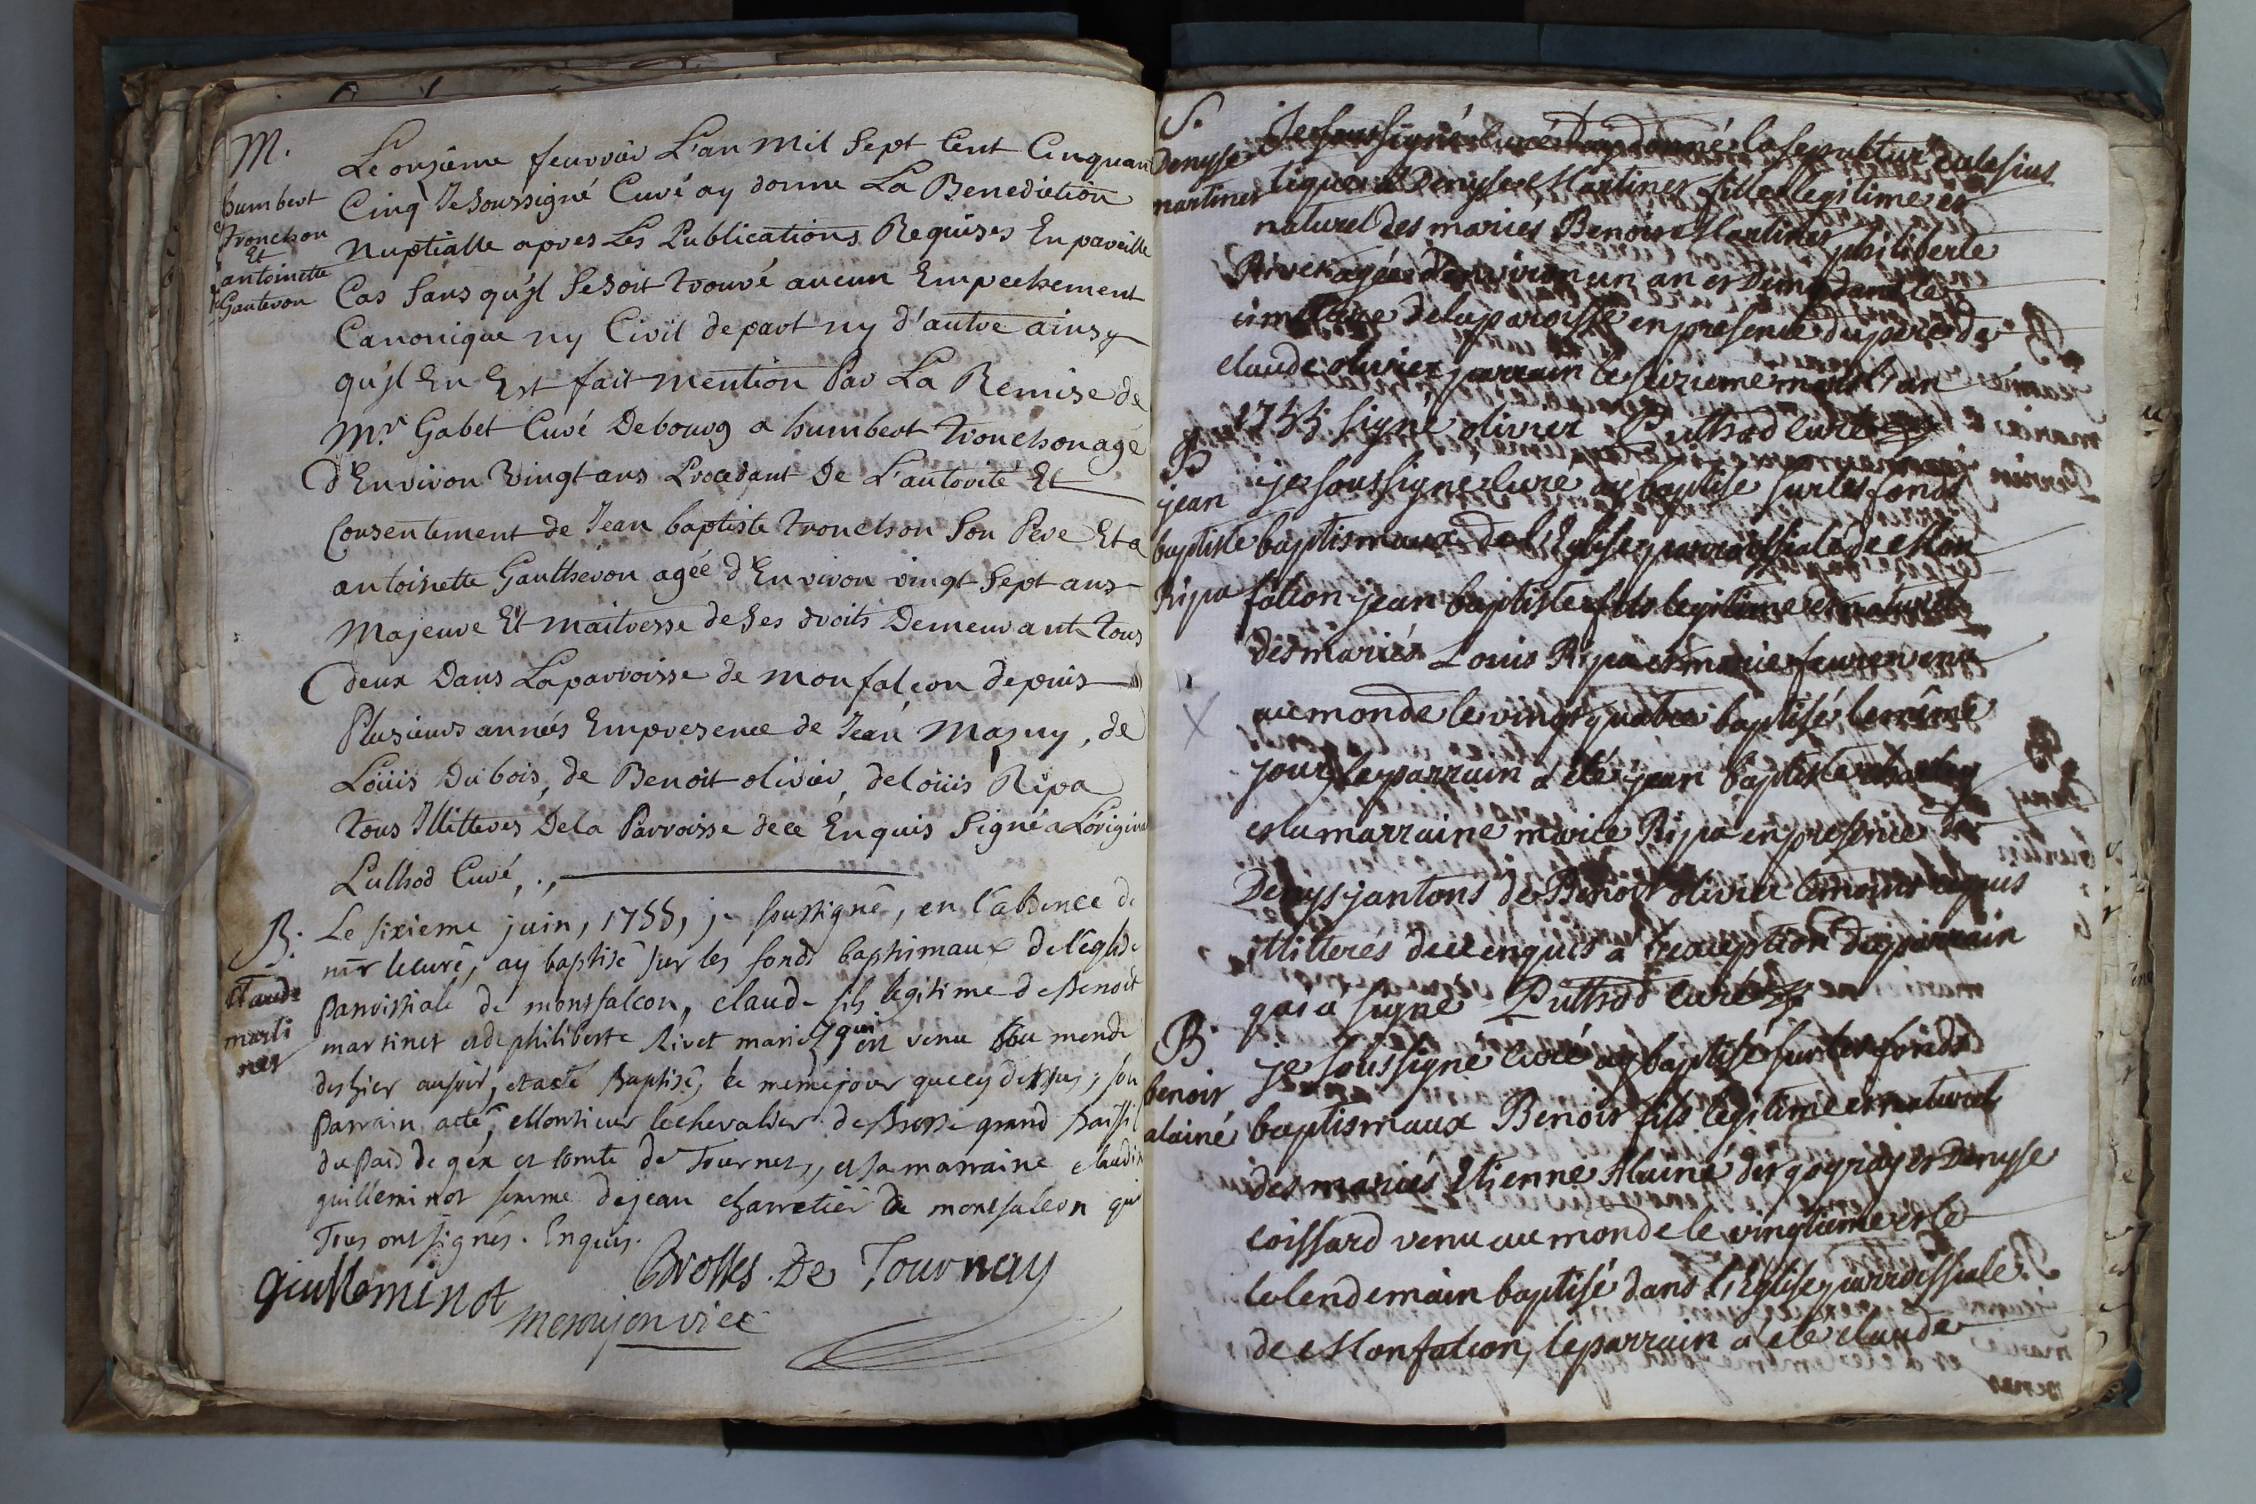 M.
humbert
tronchon
Et
antoinette
Gauteron
Le onzieme feuvrier L'an mil Sept Cent Cinquan
Cinq Je Soussigné Curé ay donne La Benediction
nuptialle apres Les Publications Requises En pareille
Cas Sans qu'jl Se Soit trouvé aucun Empechement
Canonique ny Civil de part ny d'autre ainsy
qu'jl En Est fait mention Par La Remise de
Mr. Gabet Curé De bourg a humbert tronchon agé
d'Environ vingt ans Procedant De L'autorité Et
Consentement de Jean baptiste tronchon Son Pere Et a
antoinette Gautheron agée d'Environ vingt Sept ans
Majeure Et maitresse de Ses droits Demeurant tous
deux Dans La parroisse de monfalcon depuis
Plusieurs annés En presence de Jean Magny, de
Loüis Dubois, de Benoit olivier, de loüis Ripa
tous Illitteres De la Parroisse de ce Enquis Signé a L'origina
Puthod Curé,.,
B.
Claude
marti
net
Le sixieme juin, 1755, je soussigné, en l'absence de
mr le curé, ay baptisé sur les fonds baptismaux de l'église
Parroissiale de montfalcon, claude fils legitime de Benoit
martinet et de philiberte Rivet mariez, qui est venu au monde
des hier au soir, et a eté Baptisé, le meme jour que cy dessus, son
Parrain a eté, Monsieur le chevalier de Brosse grand Baillif
du Païs de gex et comte de Tournez, et sa marraine claudine
guilleminot femme de jean charretier de montfalcon qui
Tous ont signés. Enquis.
guilleminot
Brosses De Tournay
S.
Denyse
martinet
Je soussigné curé ay donné la sepulture eclesias
tique à Denyse Martinet fille legitime et
naturel des mariés Benoit Martinet philiberte
Rivet agée d'environ un an et Demy dans le
cimetiere de la paroisse en presence du pere de
claude olivier parrain le seizieme mars l'an
1755 signé olivier Puthod curé
B
jean
baptiste
Ripa
je soussigné curé ay baptisé sur les fonds
baptismaux de l'Eglise parroissiale de Mon
falcon jean baptiste fils legitime et naturel
des mariés Louis Ripa et marie feuvre venu
au monde le vingt quatre baptisé le même
jour, le parrain a été jean baptiste charley
et la marraine marie Ripa en presence de
Denys jantons de Benoit olivier temoins requis
illiterés de ce enquis a l'exception du parrain
qui a signé Puthod curé
B
benoit
alainé
je soussigné curé ay baptisé sur les fonds
baptismaux Benoit fils legitime et naturel
des mariés Etienne Alainé et Denyse
coissard venu au monde le vingtieme et le
lendemain baptisé dans l'Eglise parroissiale
de Monfalcon, le parrain a été claude